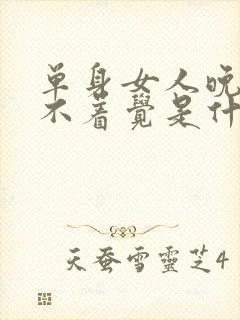 单身女人晚
不着覺是什
天蚕雪靈芝4